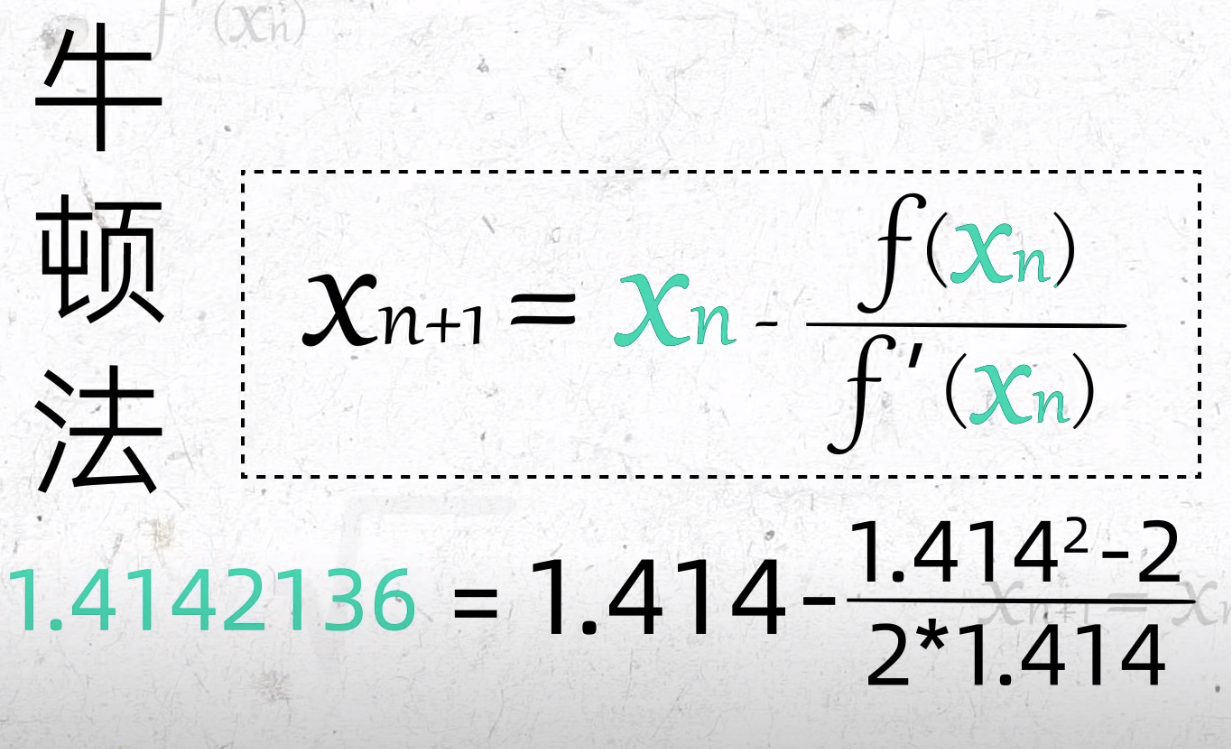 f'(xn)
牛顿法
xn+1 = xn - f(xn) / f'(xn)
1.4142136 = 1.414 - 1.414²-2 / 2*1.414
xn+1 = x